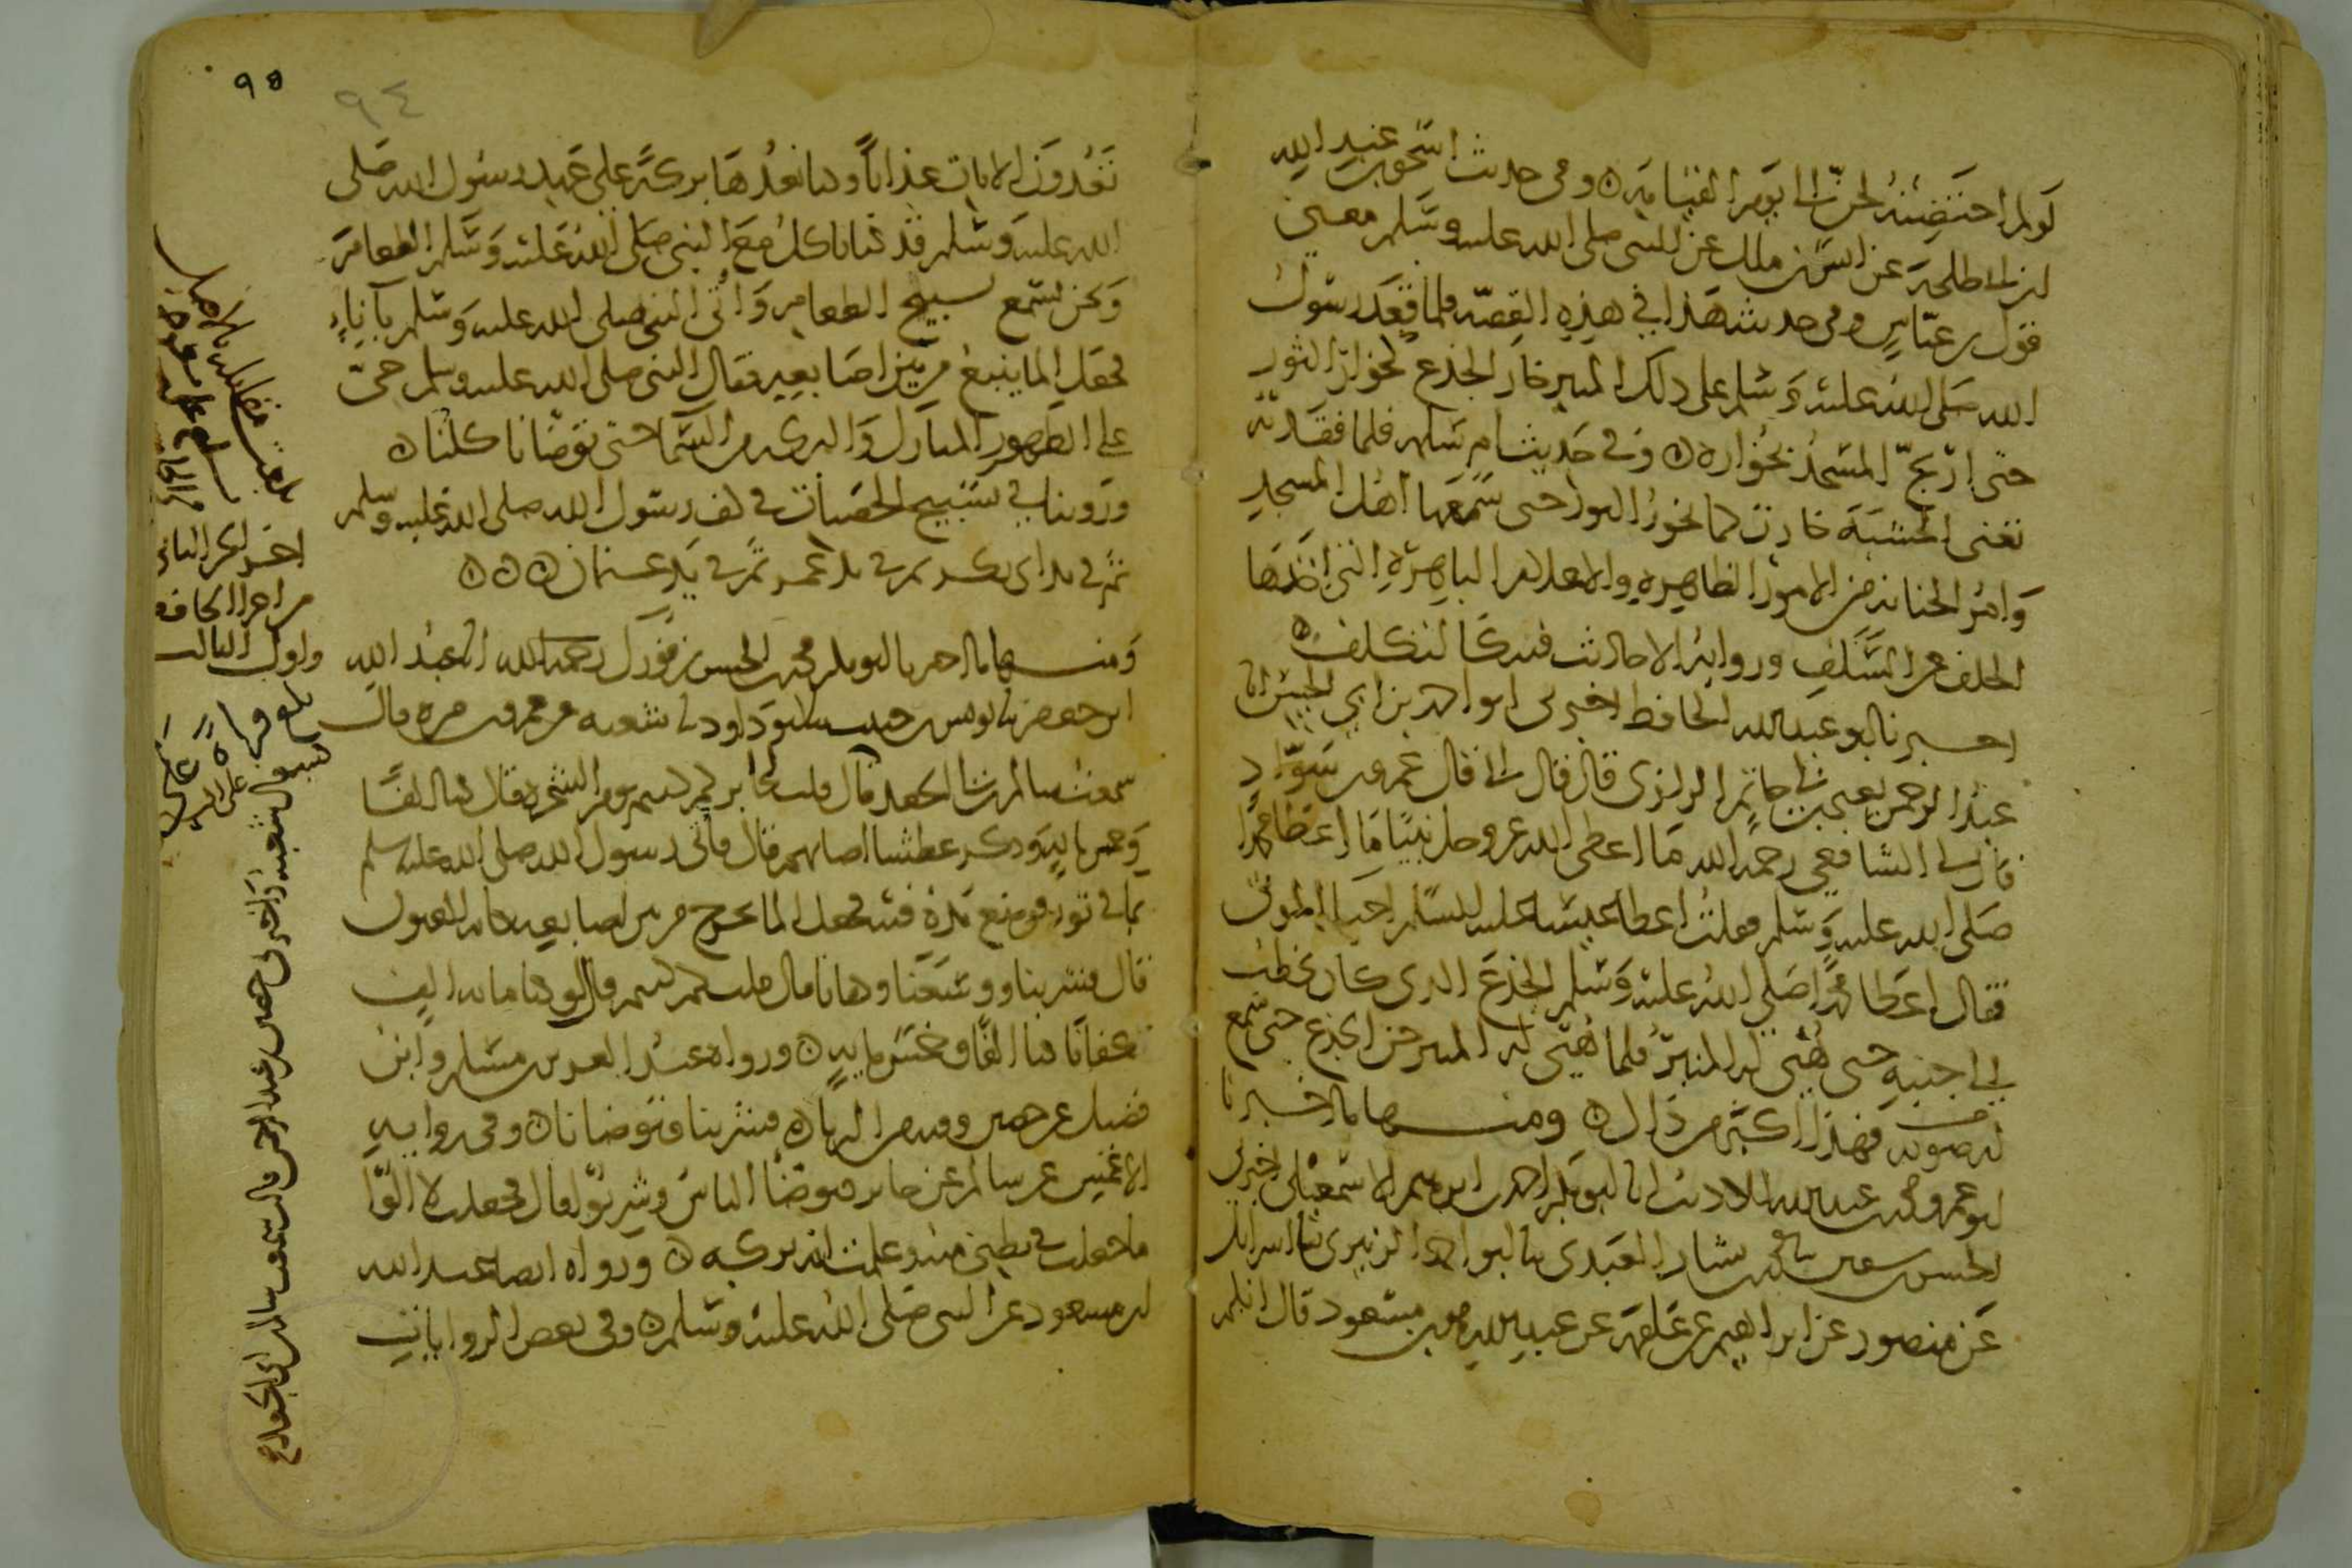 لو لم احتضنه لحن الى يوم القيامة ٥ وفي حديث اسحق بن عبد الله
ابن ابي طلحة عن انس بن ملك عن النبي صلى الله عليه وسلم معنى
قول ابن عباس وفي حديثه هذا في هذه القصة فلما قعد رسول
الله صلى الله عليه وسلم على ذلك المنبر خار الجذع كخوار الثور
حتى ارتج المسجد بخواره ٥ وفي حديث ام سلمة فلما فقدته
تعنى الخشبة خارت كما يخور الثور حتى سمعها اهل المسجد
وامر الحنانة من الامور الظاهرة والاعلام الباهرة التي اخذها
الخلف عن السلف ورواية الاحاديث فيه كالتكلف ٥
اخبرنا ابو عبد الله الحافظ اخبرني ابو احمد بن ابي الحسن انا
عبد الرحمن يعني بن ابي حاتم الرازي قال قال ابي قال عمرو بن سواد
قال لي الشافعي رحمه الله ما اعطى الله عز وجل نبيا ما اعطا محمدا
صلى الله عليه وسلم فقلت اعطا عيسى عليه السلم احيا الموتى
فقال اعطا محمدا صلى الله عليه وسلم الجذع الذي كان يخطب
الى جنبه حتى هيئ له المنبر فلما هيئ له المنبر حن الجذع حتى سمع
له صوت فهذا اكثر من ذاك ٥ ومنها ما اخبرنا
ابو عمرو محمد بن عبد الله الاديب انا ابو بكر احمد بن ابراهيم الاسمعيلي اخبرني
الحسن بن سفين نا محمد بن بشار العبدي نا ابو احمد الزبيري نا اسرائيل
عن منصور عن ابراهيم عن علقمة عن عبد الله هو بن مسعود قال انكم
٩٥
٩٤
تعدون الايات عذابا وكنا نعدها بركة على عهد رسول الله صلى
الله عليه وسلم قد كنا ناكل مع النبي صلى الله عليه وسلم الطعام
ونحن نسمع تسبيح الطعام واتى النبي صلى الله عليه وسلم بآناء
فجعل الما ينبع من بين اصابعه فقال النبي صلى الله عليه وسلم حي
على الطهور المبارك والبركة من السما حتى توضانا كلنا ٥
وروينا في تسبيح الحصيات في كف رسول الله صلى الله عليه وسلم
ثم في يد ابي بكر ثم في يد عمر ثم في يد عثمان ٥ ٥ ٥
ومنها ما اخبرنا ابو بكر محمد بن الحسن بن فورك رحمه الله انا عبد الله
ابن جعفر نا يونس بن حبيب نا ابو داود نا شعبة عن عمرو بن مرة قال
سمعت سالم بن ابي الجعد قال قلت لجابر كم كنتم يوم الشجرة قال كنا الفا
وخمس ماية وذكر عطشا اصابهم قال فاتى رسول الله صلى الله عليه وسلم
بما في تور فوضع يده فيه فجعل الما يخرج من بين اصابعه كانه العيون
قال فشربنا ووسعنا وكفانا قال قلت كم كنتم قال لو كنا ماية الف
كفانا كنا الفا وخمس ماية ٥ ورواه عبد العزيز بن مسلم وابن
فضيل عن حصين وفيه من الزيادة فشربنا وتوضانا ٥ وفي رواية
الاعمش عن سالم عن جابر فتوضا الناس وشربوا قال فجعلت لا آلوا
ما جعلت في بطني منه وعلمت انه بركة ٥ ورواه ايضا عبد الله
ابن مسعود عن النبي صلى الله عليه وسلم ٥ وفي بعض الروايات
بلغت مقابلة بالاصل
اخر الجزء الثاني
من اجزا الحافظ
واول الثالث
بلغ قراة
قال شعبة واخبرني حصين بن عبد الرحمن قال سمعت سالم بن ابي الجعد